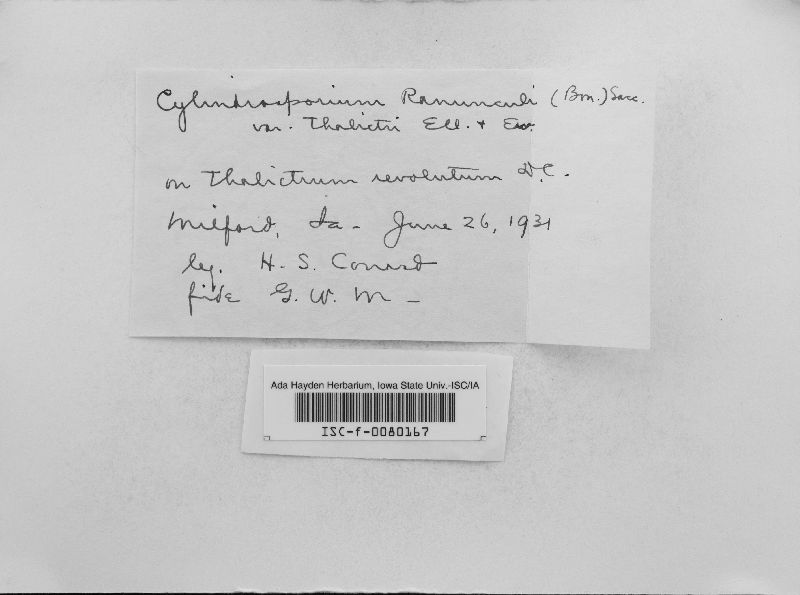 Cylindrosporium Ranunculi (Bon.) Sacc.
var. Thalictri Ell. + Ev.
on Thalictrum revolutum D.C.
Milford, Ia - June 26, 1931
leg. H. S. Conard
fide G. W. M -
Ada Hayden Herbarium, Iowa State Univ.-ISC/IA
ISC-f-0080167